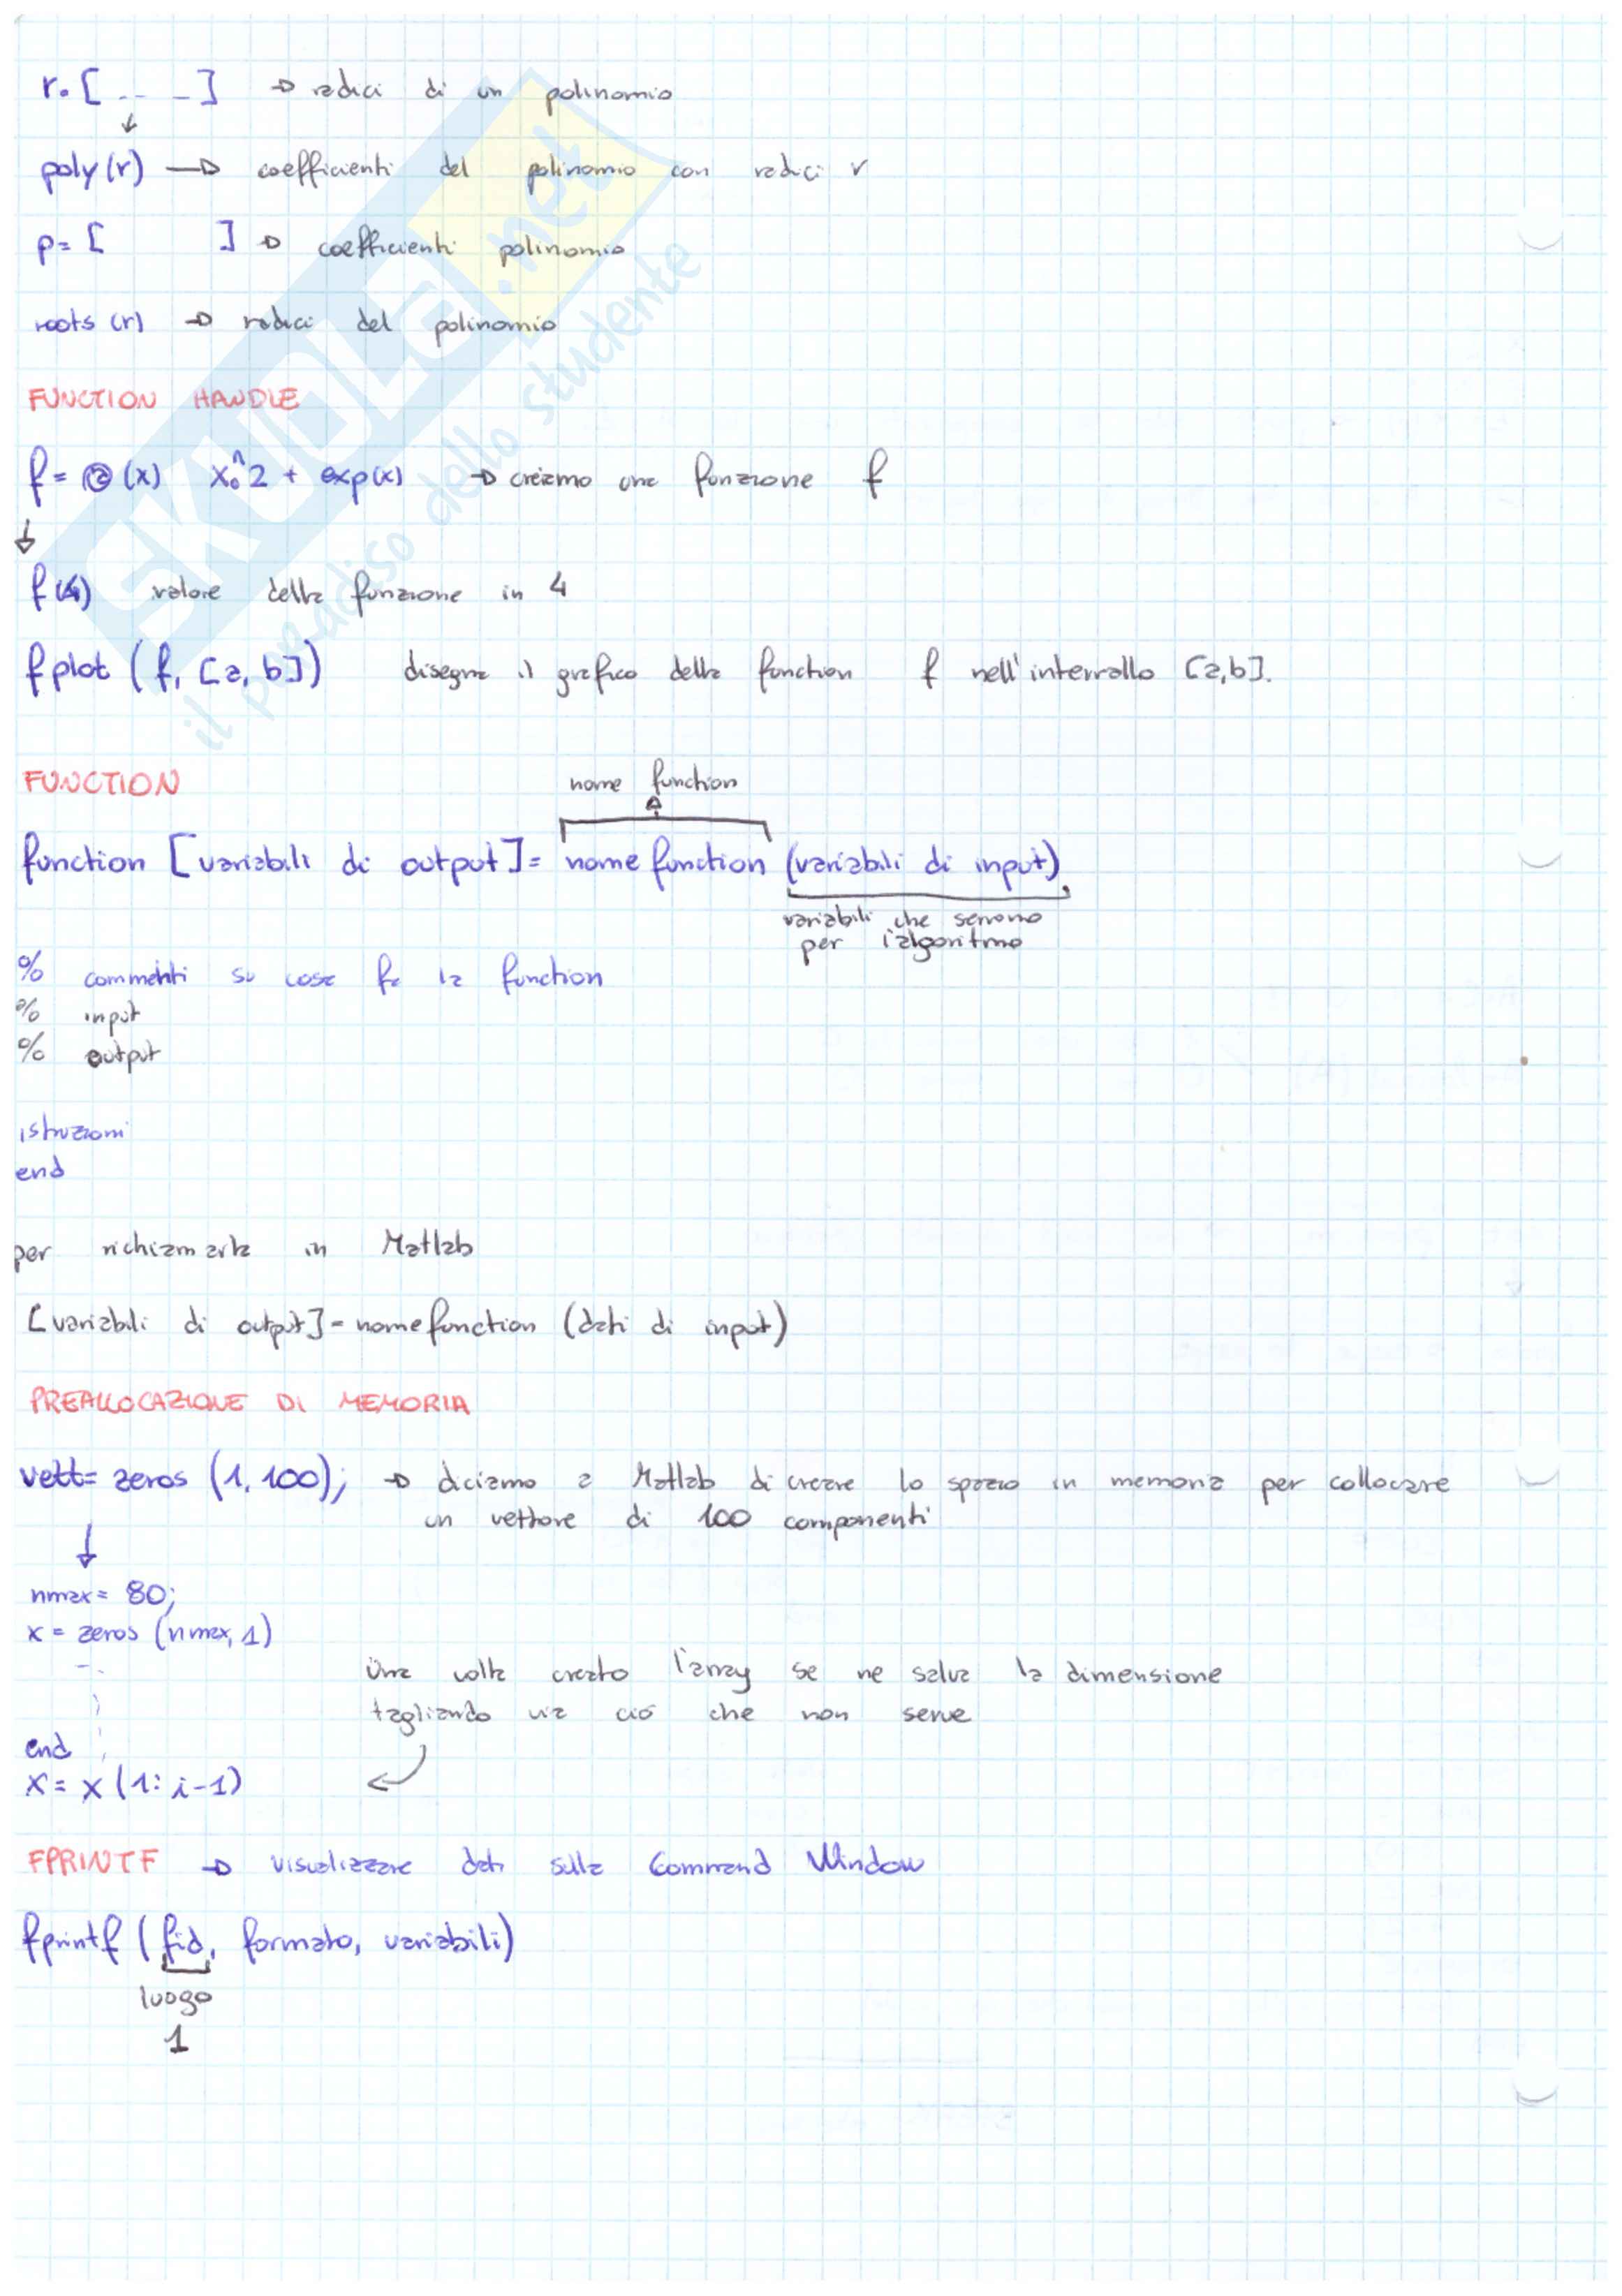 r. [ .. _ ] → radici di un polinomio
↓
poly(r) → coefficienti del polinomio con radici r
p= [ ] → coefficienti polinomio
roots (r) → radici del polinomio
FUNCTION HANDLE
f= @(x) x.^2 + exp(x) → creiamo una funzione f
↓
f(4) valore della funzione in 4
fplot (f, [a, b]) disegna il grafico della function f nell'intervallo [a,b].
FUNCTION
nome function
function [variabili di output]= nomefunction (variabili di input)
variabili che servono
per l'algoritmo
% commenti su cosa fa la function
% input
% output
istruzioni
end
per richiamarla in Matlab
[variabili di output]= nomefunction (dati di input)
PREALLOCAZIONE DI MEMORIA
vett= zeros (1, 100); → diciamo a Matlab di creare lo spazio in memoria per collocare
un vettore di 100 componenti
↓
nmax= 80;
x = zeros (nmax, 1)
Una volta creato l'array se ne salva la dimensione
tagliando via ciò che non serve
end
x= x (1: i-1)
FPRINTF → visualizzare dati sulla Command Window
fprintf (fid, formato, variabili)
luogo
1
SKUOLA.net
il paradiso dello studente